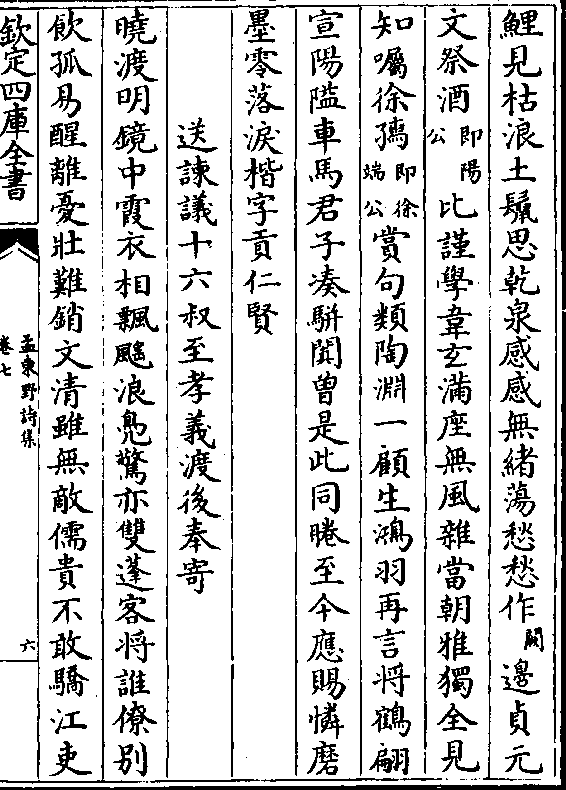 鯉見枯浪土鬣思乾泉感感無緒蕩愁愁作闕邊貞元
文祭酒即陽公比謹學韋玄滿座無風雜當朝雅獨全見
知囑徐孺即徐端公賞句類陶淵一顧生鴻羽再言將鶴翩
宣陽隘車馬君子湊駢闐曾是此同睠至今應賜憐磨
墨零落淚楷字貢仁賢
送諫議十六叔至孝義渡後奉寄
曉渡明鏡中霞衣相飄颻浪鳧驚亦雙蓬客將誰僚别
飲孤易醒離憂壯難銷文清雖無敵儒貴不敢驕江吏
欽定四庫全書
孟東野詩集
卷七
六